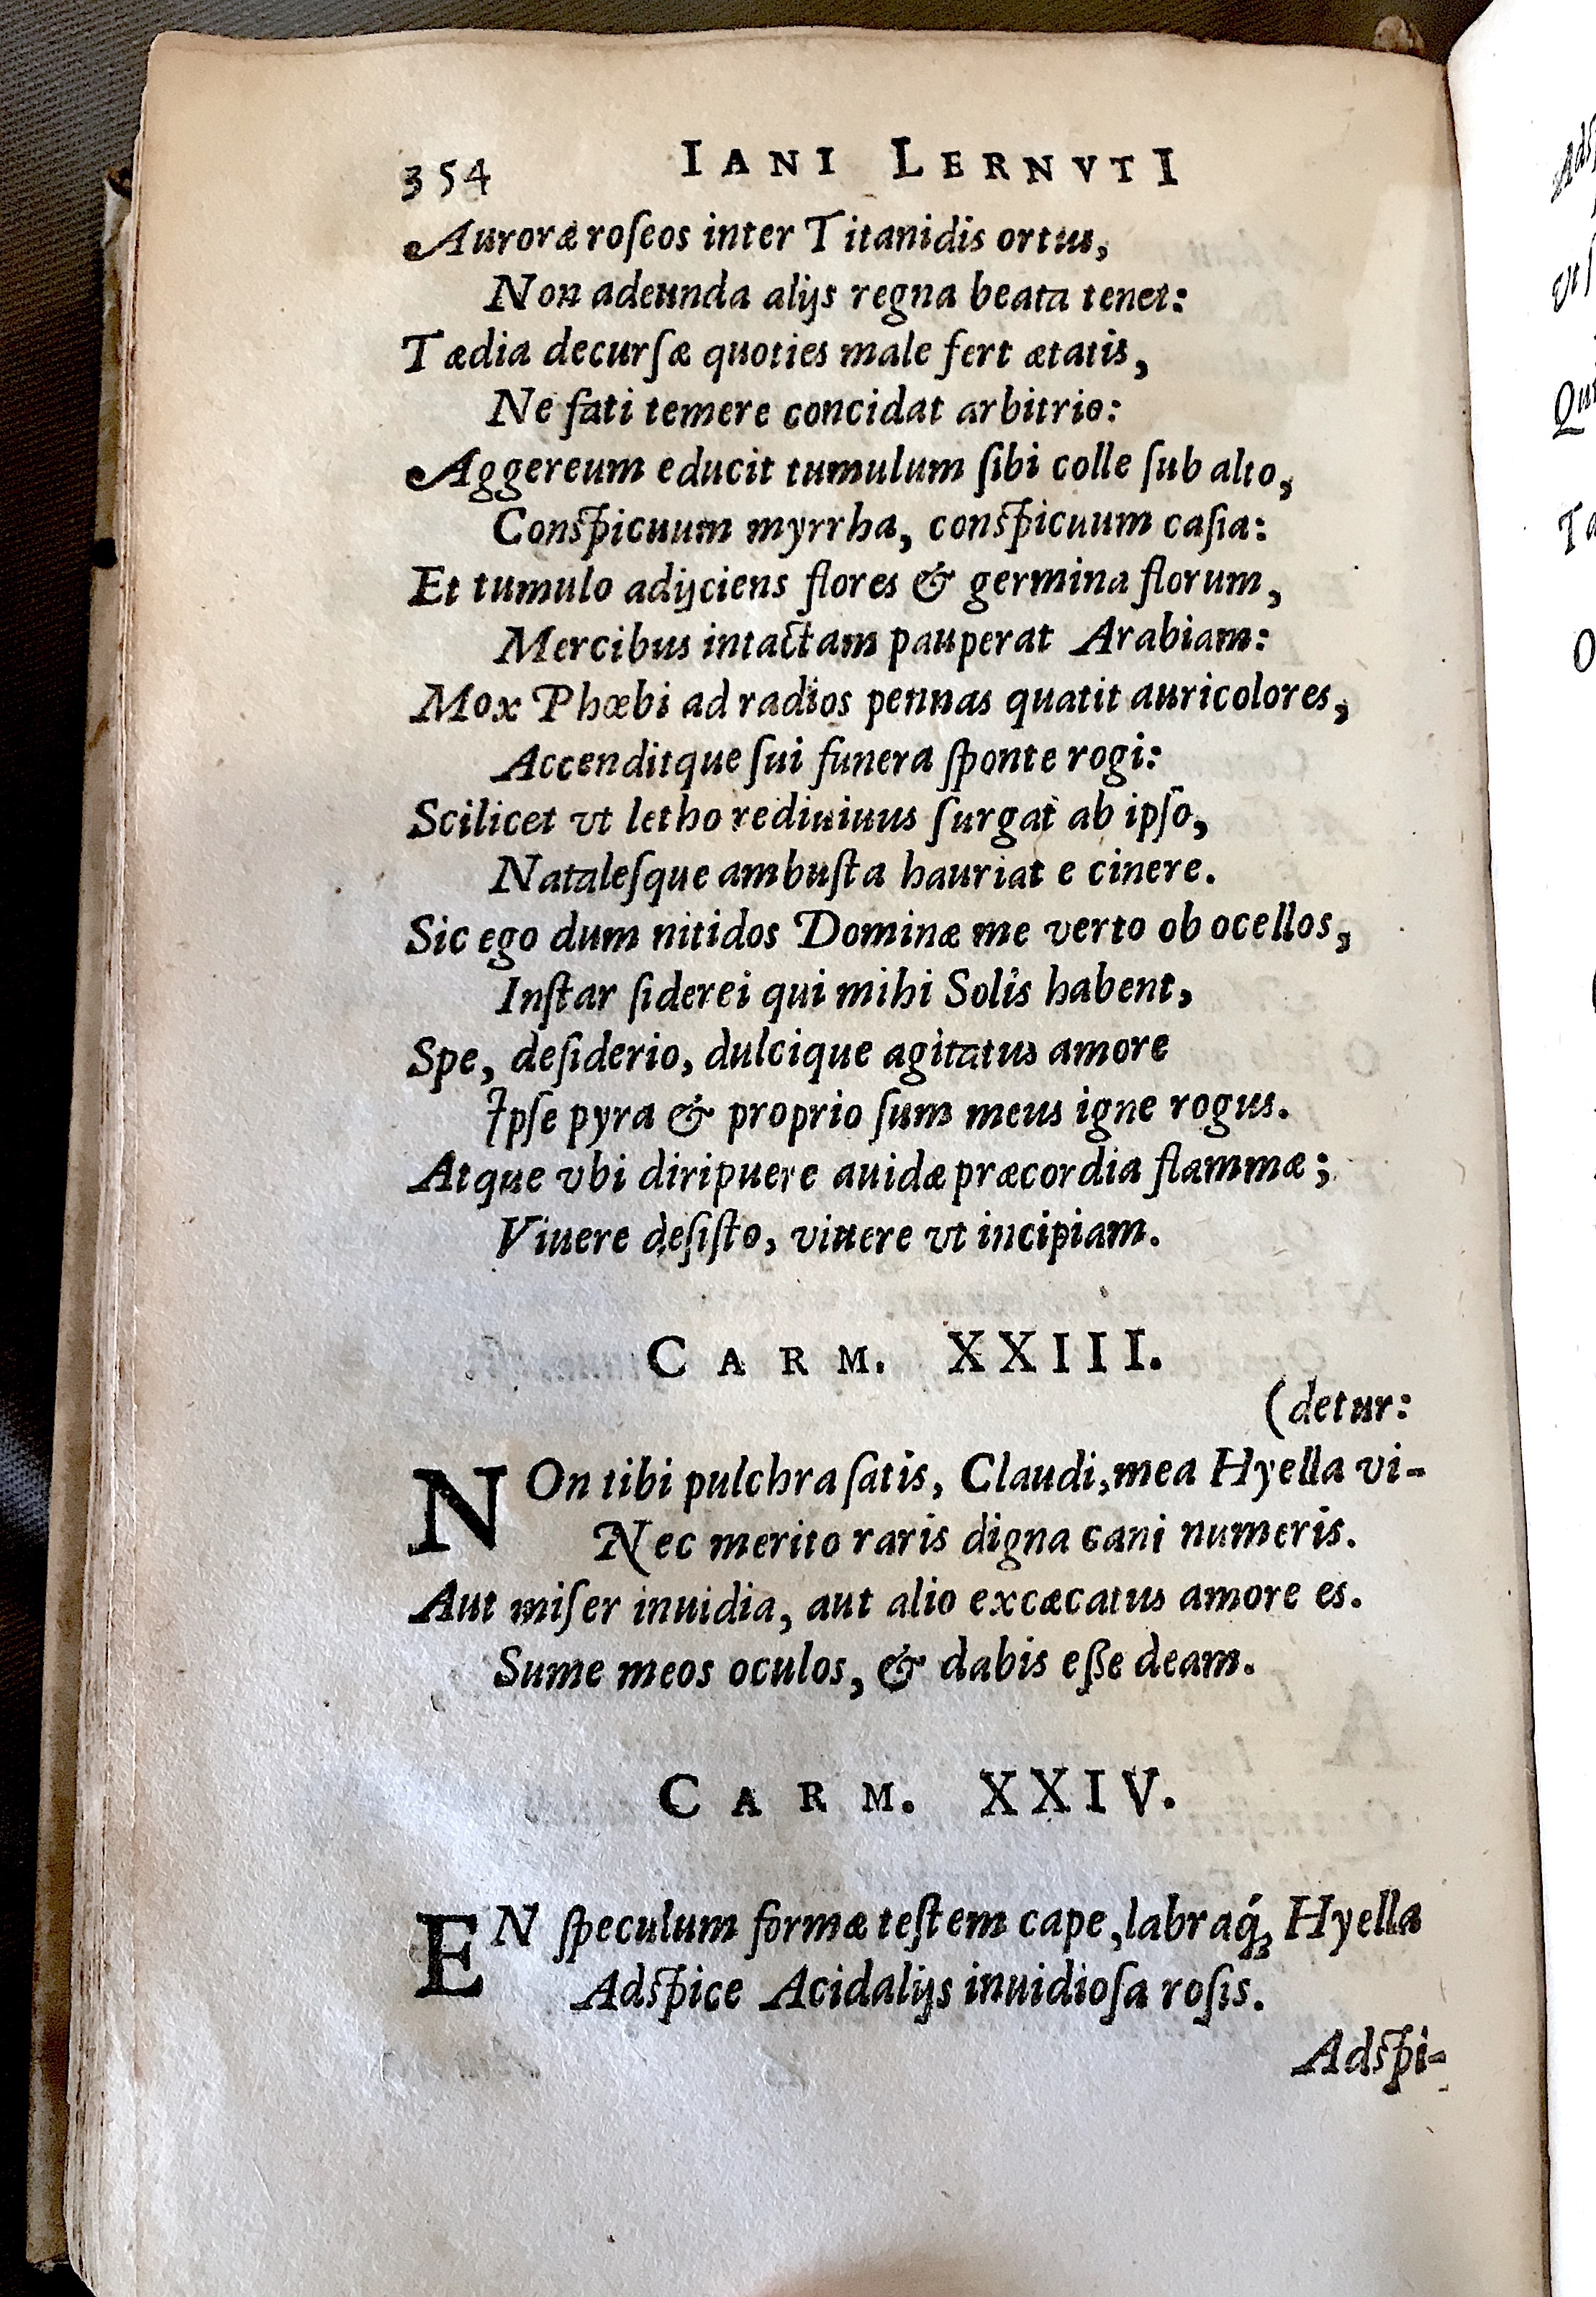 354 IANI LERNVTI
Auroræ roſeos inter Titanidis ortus,
Non adeunda alijs regna beata tenet:
Tædia decurſæ quoties male fert ætatis,
Ne fati temere concidat arbitrio:
Aggereum educit tumulum ſibi colle ſub alto,
Conſpicuum myrrha, conſpicuum caſia:
Et tumulo adijciens flores & germina florum,
Mercibus intactam pauperat Arabiam:
Mox Phœbi ad radios pennas quatit auricolores,
Accenditque ſui funera ſponte rogi:
Scilicet vt letho rediuiuus ſurgat ab ipſo,
Nataleſque ambuſta hauriat e cinere.
Sic ego dum nitidos Dominæ me verto ob ocellos,
Inſtar ſiderei qui mihi Solis habent,
Spe, deſiderio, dulcique agitatus amore
Ipſe pyra & proprio ſum meus igne rogus.
Atque vbi diripuere auidæ præcordia flammæ;
Viuere deſiſto, viuere vt incipiam.
CARM. XXIII.
(detur:
NOn tibi pulchra ſatis, Claudi, mea Hyella vi-
Nec merito raris digna cani numeris.
Aut miſer inuidia, aut alio excæcatus amore es.
Sume meos oculos, & dabis eſſe deam.
CARM. XXIV.
EN ſpeculum formæ teſtem cape, labraq́; Hyella
Adſpice Acidalijs inuidioſa roſis.
Adſpi-